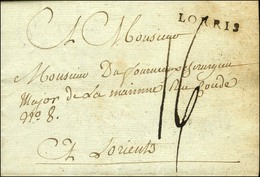 LORRIS
A Monsieur
Monsieur Du fourneau Chirurgien
Major de La marinne Rue
N.º 8.
A Lorient